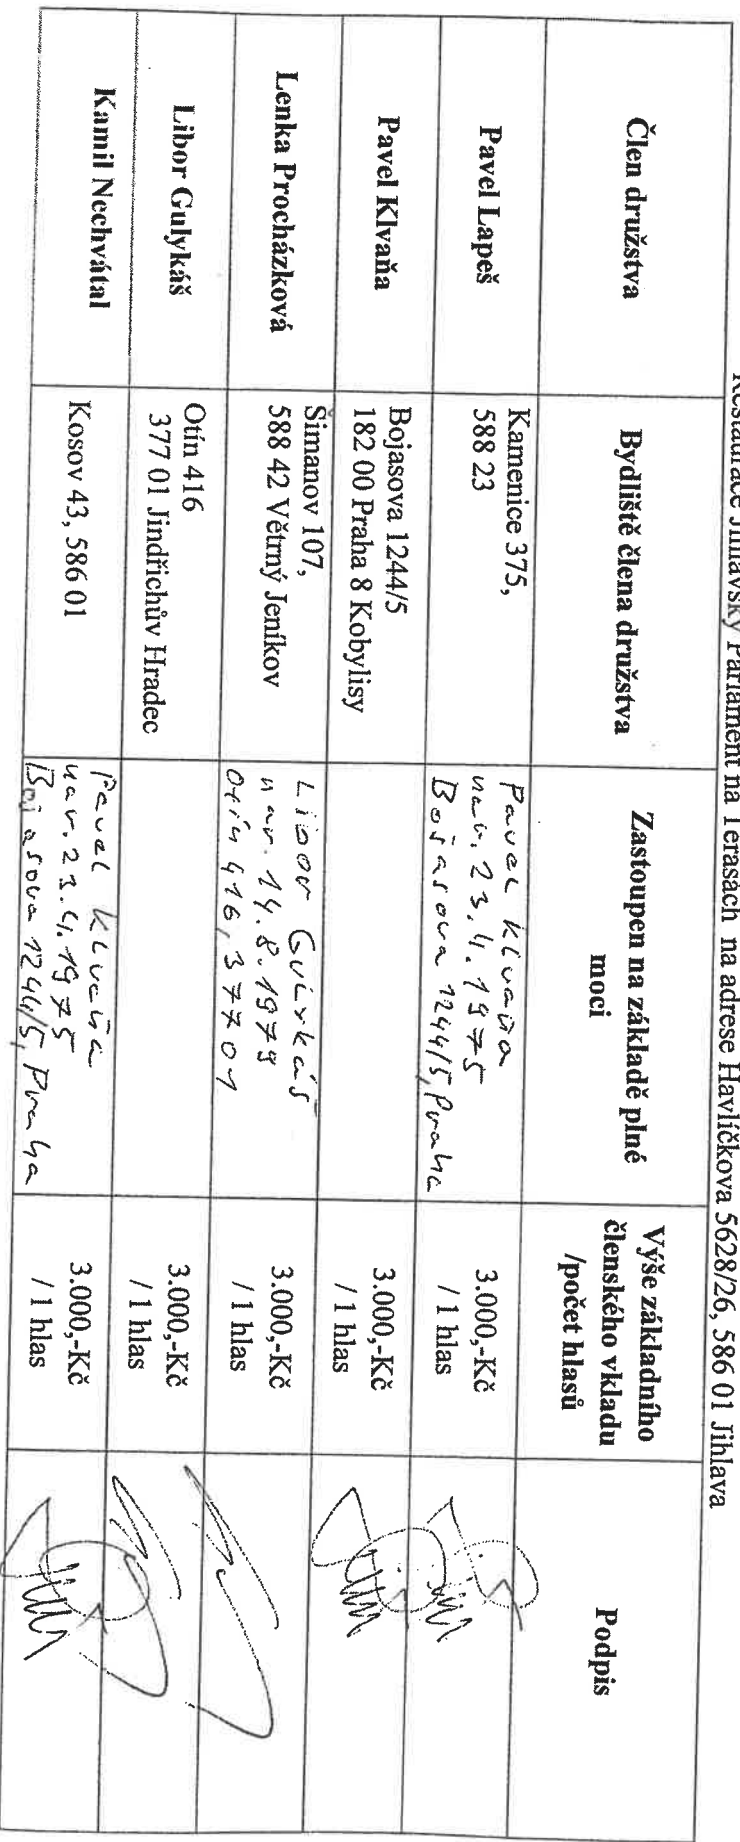 Restaurace Jihlavský Parlament na Terasách na adrese Havlíčkova 5628/26, 586 01 Jihlava
Člen družstva
Bydliště člena družstva
Zastoupen na základě plné
moci
Výše základního
členského vkladu
/počet hlasů
Podpis
Pavel Lapeš
Kamenice 375,
588 23
Pavel Klvaňa
nar. 23.4.1975
Bojasova 1244/5, Praha
3.000,-Kč
/ 1 hlas
Pavel Klvaňa
Bojasova 1244/5
182 00 Praha 8 Kobylisy
3.000,-Kč
/ 1 hlas
Lenka Procházková
Šimanov 107,
588 42 Větrný Jeníkov
Libor Gulykáš
nar. 14.8.1979
Otín 416, 37701
3.000,-Kč
/ 1 hlas
Libor Gulykáš
Otín 416
377 01 Jindřichův Hradec
3.000,-Kč
/ 1 hlas
Kamil Nechvátal
Kosov 43, 586 01
Pavel Klvaňa
nar. 23.4.1975
Bojasova 1244/5, Praha
3.000,-Kč
/ 1 hlas